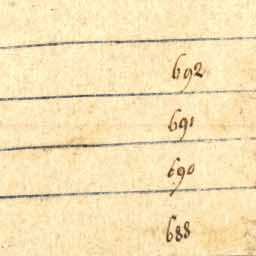 692
691
690
688